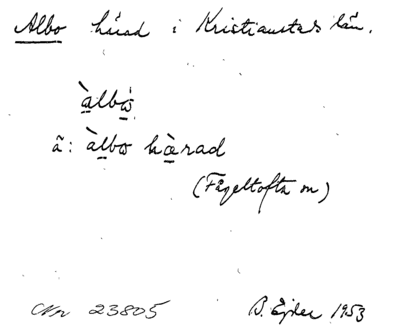 Albo härad i Kristianstads län.
àlbo
ã: àlbo hærad
(Fågeltofta sn)
Nr 23805 B. Ejder 1953